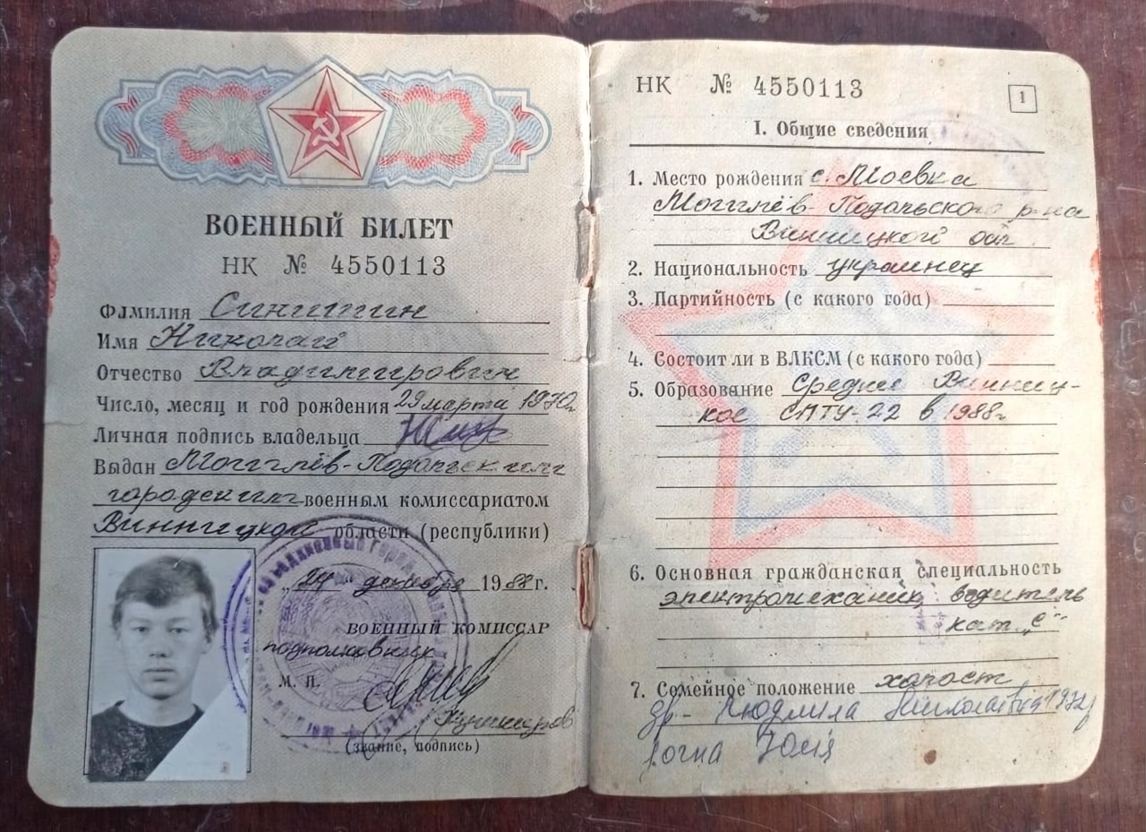 ВОЕННЫЙ БИЛЕТ
НК № 4550113
Фамилия
Имя Николай
Отчество Владимирович
Число, месяц и год рождения 29 марта 1970г
Личная подпись владельца
Выдан Могилёв-Подольским
городским военным комиссариатом
Винницкой области (республики)
декабря 1988г.
ВОЕННЫЙ КОМИССАР
подполковник
М. П.
(звание, подпись)
НК № 4550113
1
I. Общие сведения
1. Место рождения с. Моевка
Могилёв-Подольского р-на
Винницкой обл
2. Национальность украинец
3. Партийность (с какого года)
4. Состоит ли в ВЛКСМ (с какого года)
5. Образование Среднее Винниц-
кое СПТУ-22 в 1988г
6. Основная гражданская специальность
электромеханик водитель
кат. „С"
7. Семейное положение холост
Людмила Николаевна 1972
Юлія